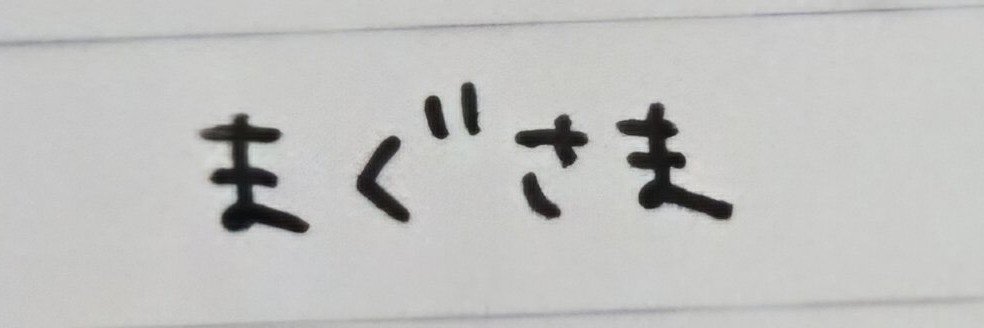 まぐさま